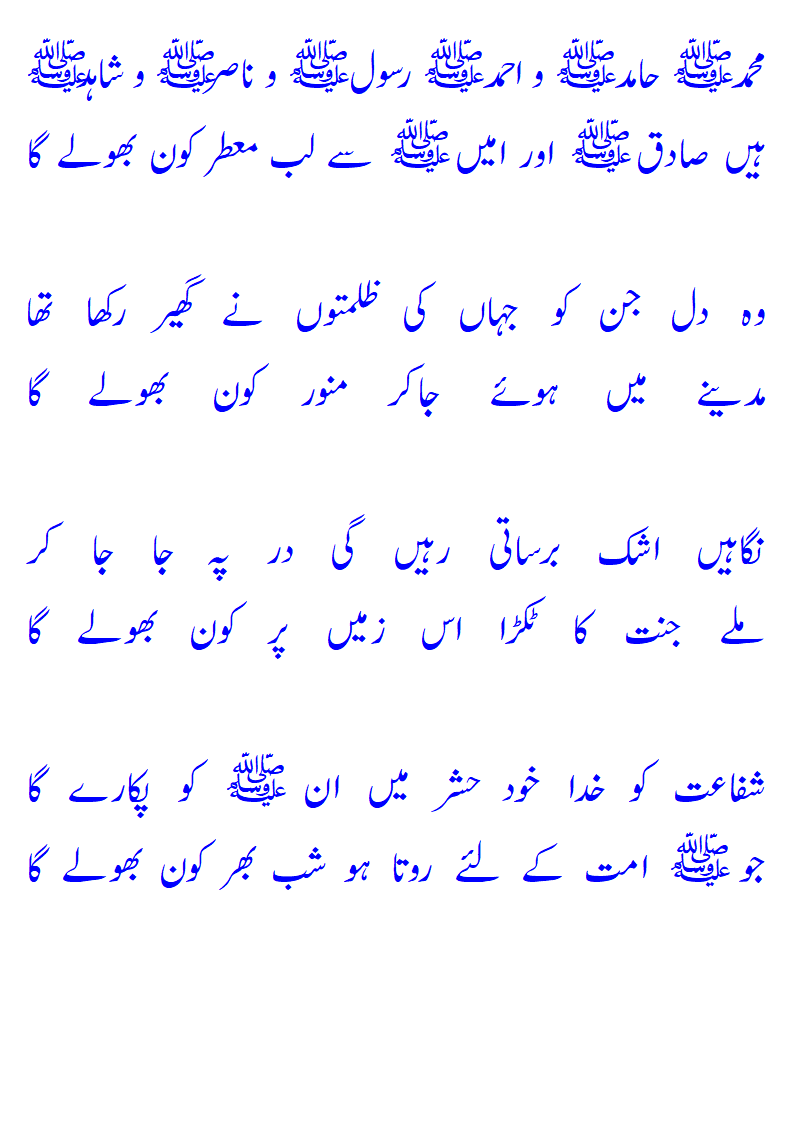 محمدﷺ حامدﷺ و احمدﷺ رسولﷺ و ناصرﷺ و شاہدﷺ
ہیں صادقﷺ اور امیںﷺ سے لب معطر کون بھولے گا
وہ دل جن کو جہاں کی ظلمتوں نے گھیر رکھا تھا
مدینے میں ہوئے جاکر منور کون بھولے گا
نگاہیں اشک برساتی رہیں گی در پہ جا جا کر
ملے جنت کا ٹکڑا اس زمیں پر کون بھولے گا
شفاعت کو خدا خود حشر میں ان ﷺ کو پکارے گا
جو ﷺ امت کے لئے روتا ہو شب بھر کون بھولے گا